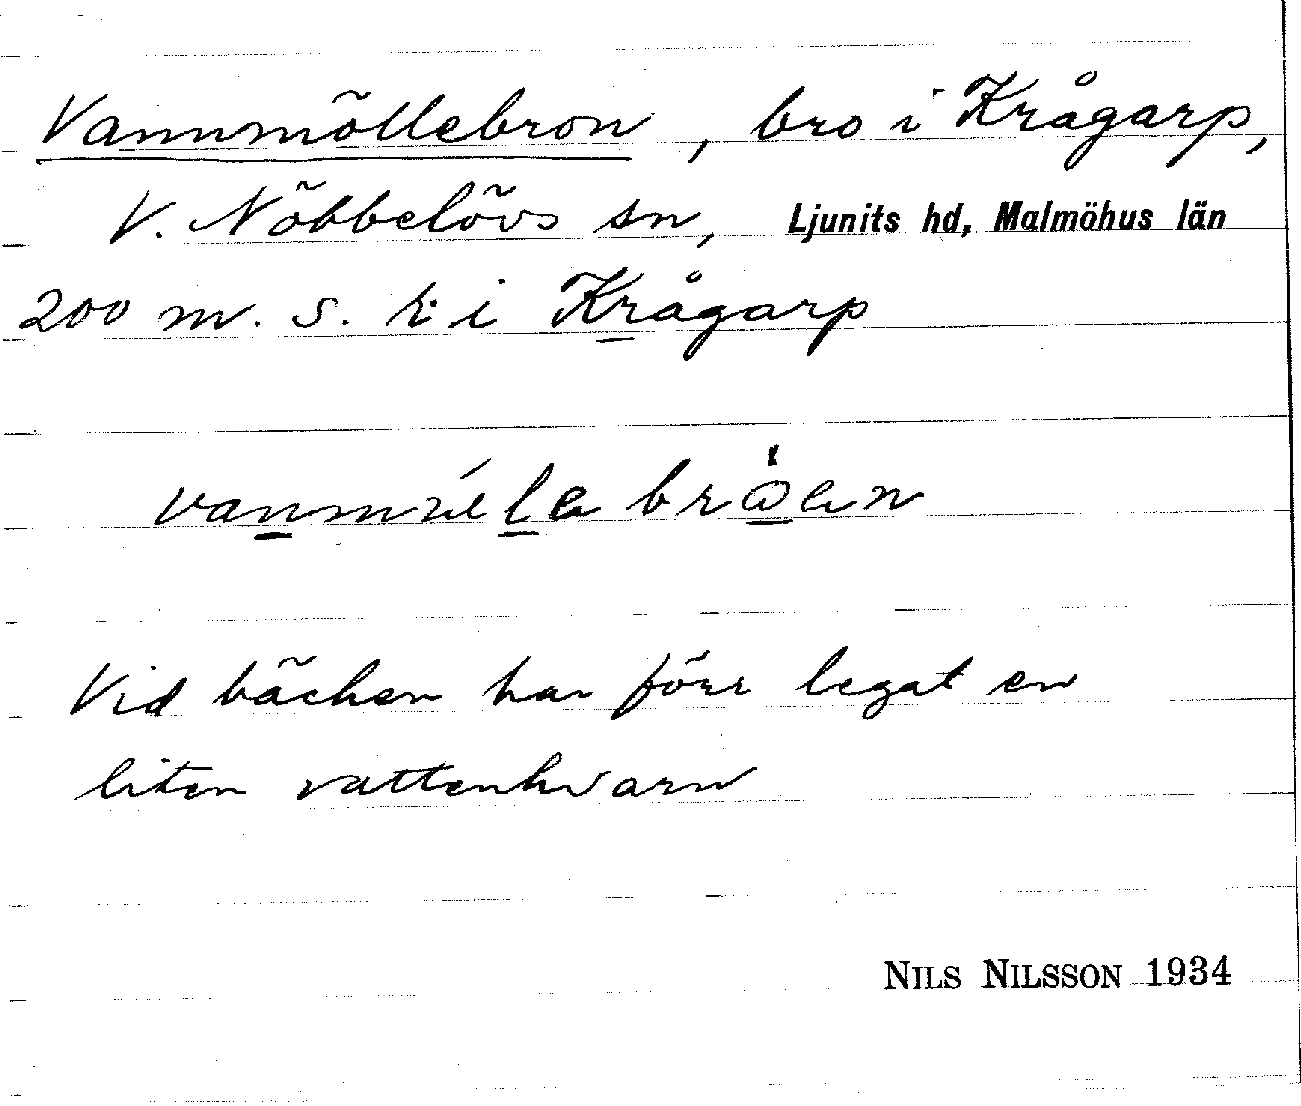 Vannmöllebron, bro i Krågarp,
V. Nöbbelövs sn, Ljunits hd, Malmöhus län
200 m. S. k:i Krågarp
Vid bäcken har förr legat en
liten vattenkvarn
NILS NILSSON 1934